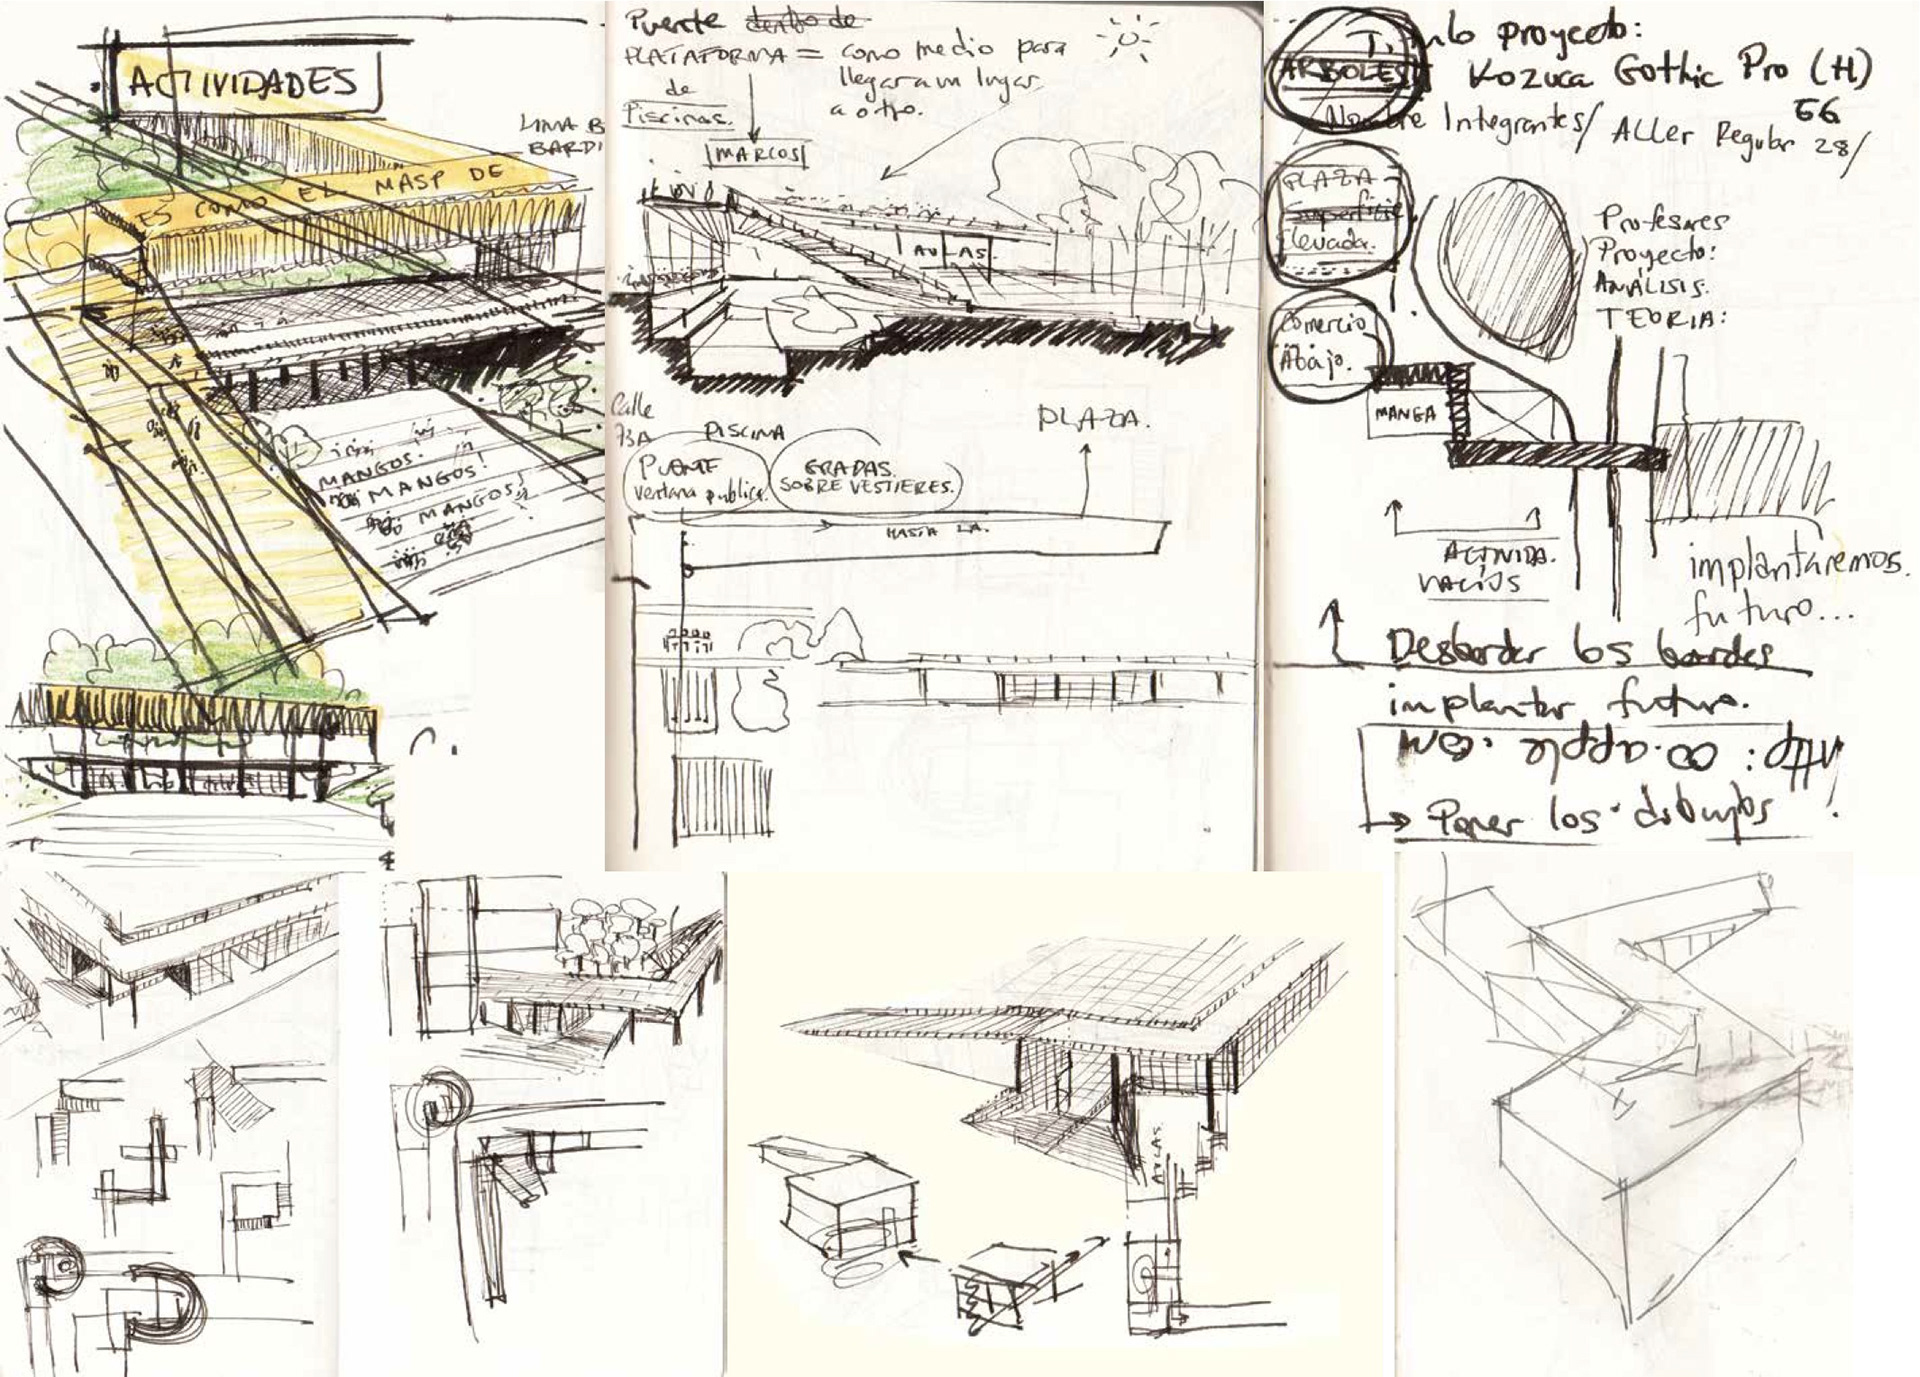 ACTIVIDADES
LINA B
BARDI
ES COMO EL MASP DE
MANGOS.
MANGOS!
MANGOS!
Puente dentro de
PLATAFORMA = como medio para
llegar a un lugar
a otro.
de
Piscinas.
MARCOS
AULAS.
Calle
73A
PISCINA
PLAZA.
PUENTE
ventana publica.
GRADAS.
SOBRE VESTIERES.
HASTA LA.
Titulo proyecto:
ARBOLES
Kozuca Gothic Pro (H)
56
Nombre Integrantes/ Aller Regular 28/
PLAZA
Superficie
Elevada.
Profesores
Proyecto:
ANÁLISIS.
TEORIA:
Comercio
Abajo.
MANGA
ACTIVIDA.
VACIOS
implantaremos.
futuro...
Desbordar los bordes
implantar futuro.
→ Poner los dibujos
AULAS